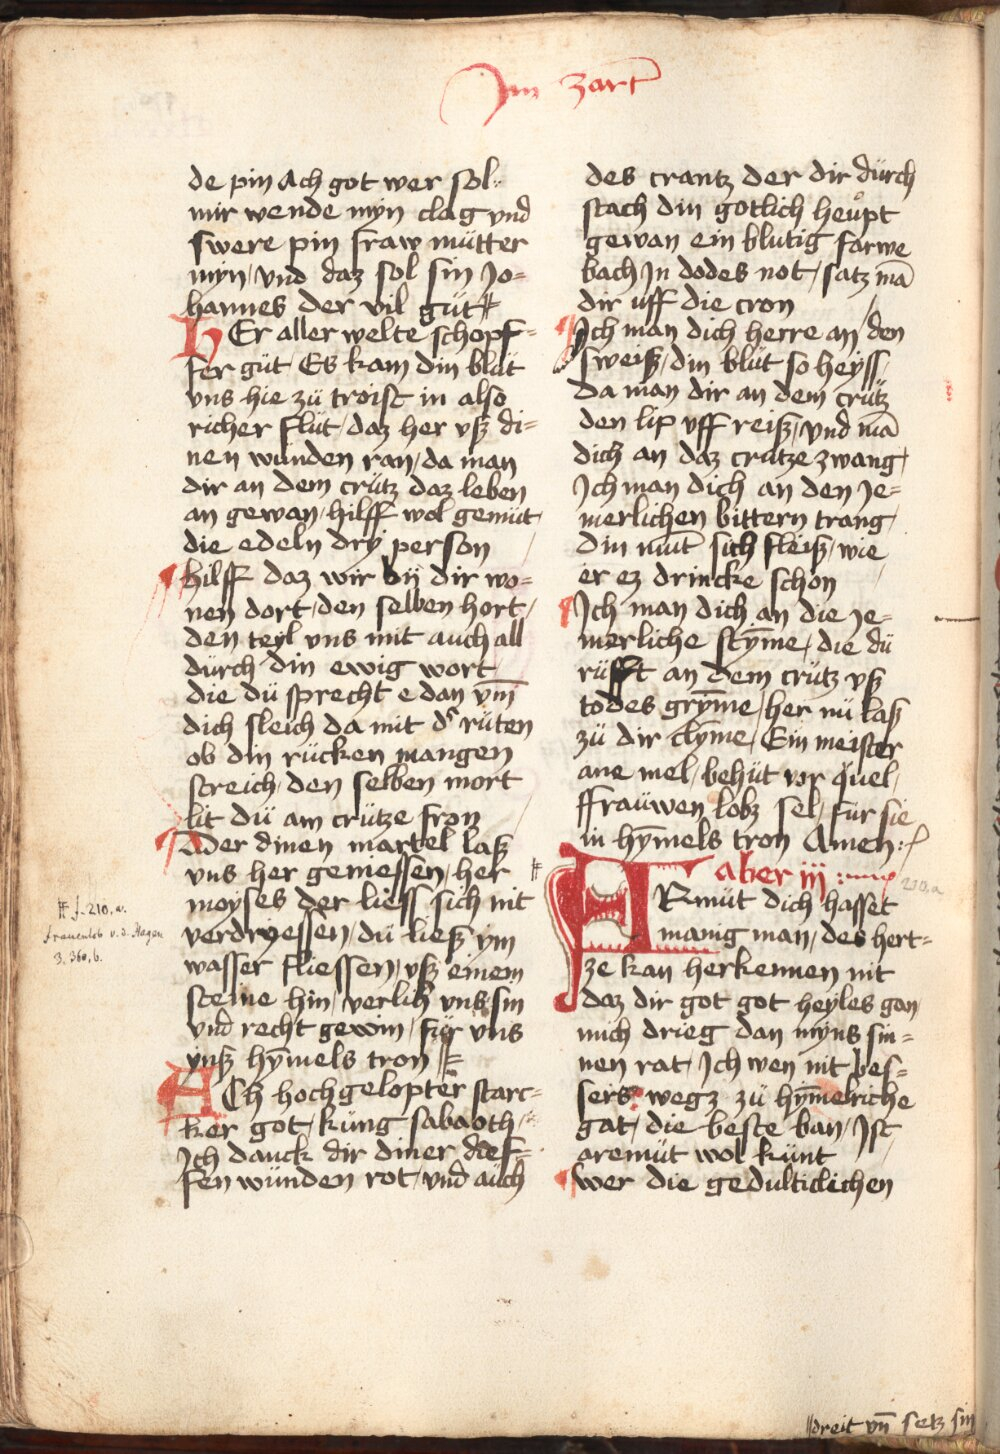 Im zart
de pin Ach got wer sol
mir wende myn clag vnd
swere pin fraw mütter
myn / vnd daz sol sin Jo=
hannes der vil güt
HEr aller welte schopf=
fer güt / Es kam din blüt
vns hie zü troist in also
richer flüt / daz her vß di=
nen wunden ran / da man
dir an dem crütz daz leben
an gewan / hilff wol gemüt
die edeln dry person
hilff daz wir bÿ dir wo=
nen dort / den selben hort /
den teyl vns mit auch all
dürch din ewig wort
die dü sprecht e dan ym̄
dich sleich da mit ds rüten
ob din rücken mangen
streich / den selben mort
lit dü am crütze fron
Ader dinen martel laß
vns her geniessen / her
moyses der liess sich nit
verdryessen / dü ließ ym
wasser fliessen / vß einem
steine hin / verlih vns sin
vnd recht gewin / für vns
ynß hȳmels tron
ACh hochgelopter starc=
ker got / küng sabaoth /
Ich danck dir diner dief=
fen wünden rot / vnd aüch
des crantz der dir dürch
stach din gotlich heupt
gewan ein blutig farwe
bach Jn dodes not / satz mā
dir uff die cron
Ich man dich herre an den
sweiß / din blüt so heyss /
da man dir an dem crütz
den lip vff reiß / vnd mā
dich an daz crutze zwang /
Ich man dich an den Je=
merlichen bittern trang /
din munt sich fleiß / wie
er ez drincke schon
Ich man dich an die Je=
merliche stȳme / die dü
rüfft an dem crütz vß
todes grȳme / her nü laß
zü dir clȳme / Ein meister
ane mel / behüt vor quel /
ffraüwen lobz sel / für sie
in hȳmels tron Amen
aber iij
210,a
ARmüt dich hasset
manig man / des hert=
ze kan herkennen nit
daz dir got got heyles gan
mich drieg dan myns sin=
nen rat / Ich wen nit bes=
sers wegz zü hȳmelriche
gat / die beste ban / Ist
aremüt wol künt
wer die gedulticlichen
f. 210. a.
Frauenlob v. d. Hagen
3, 360, b.
dreit vn̄ setz sin